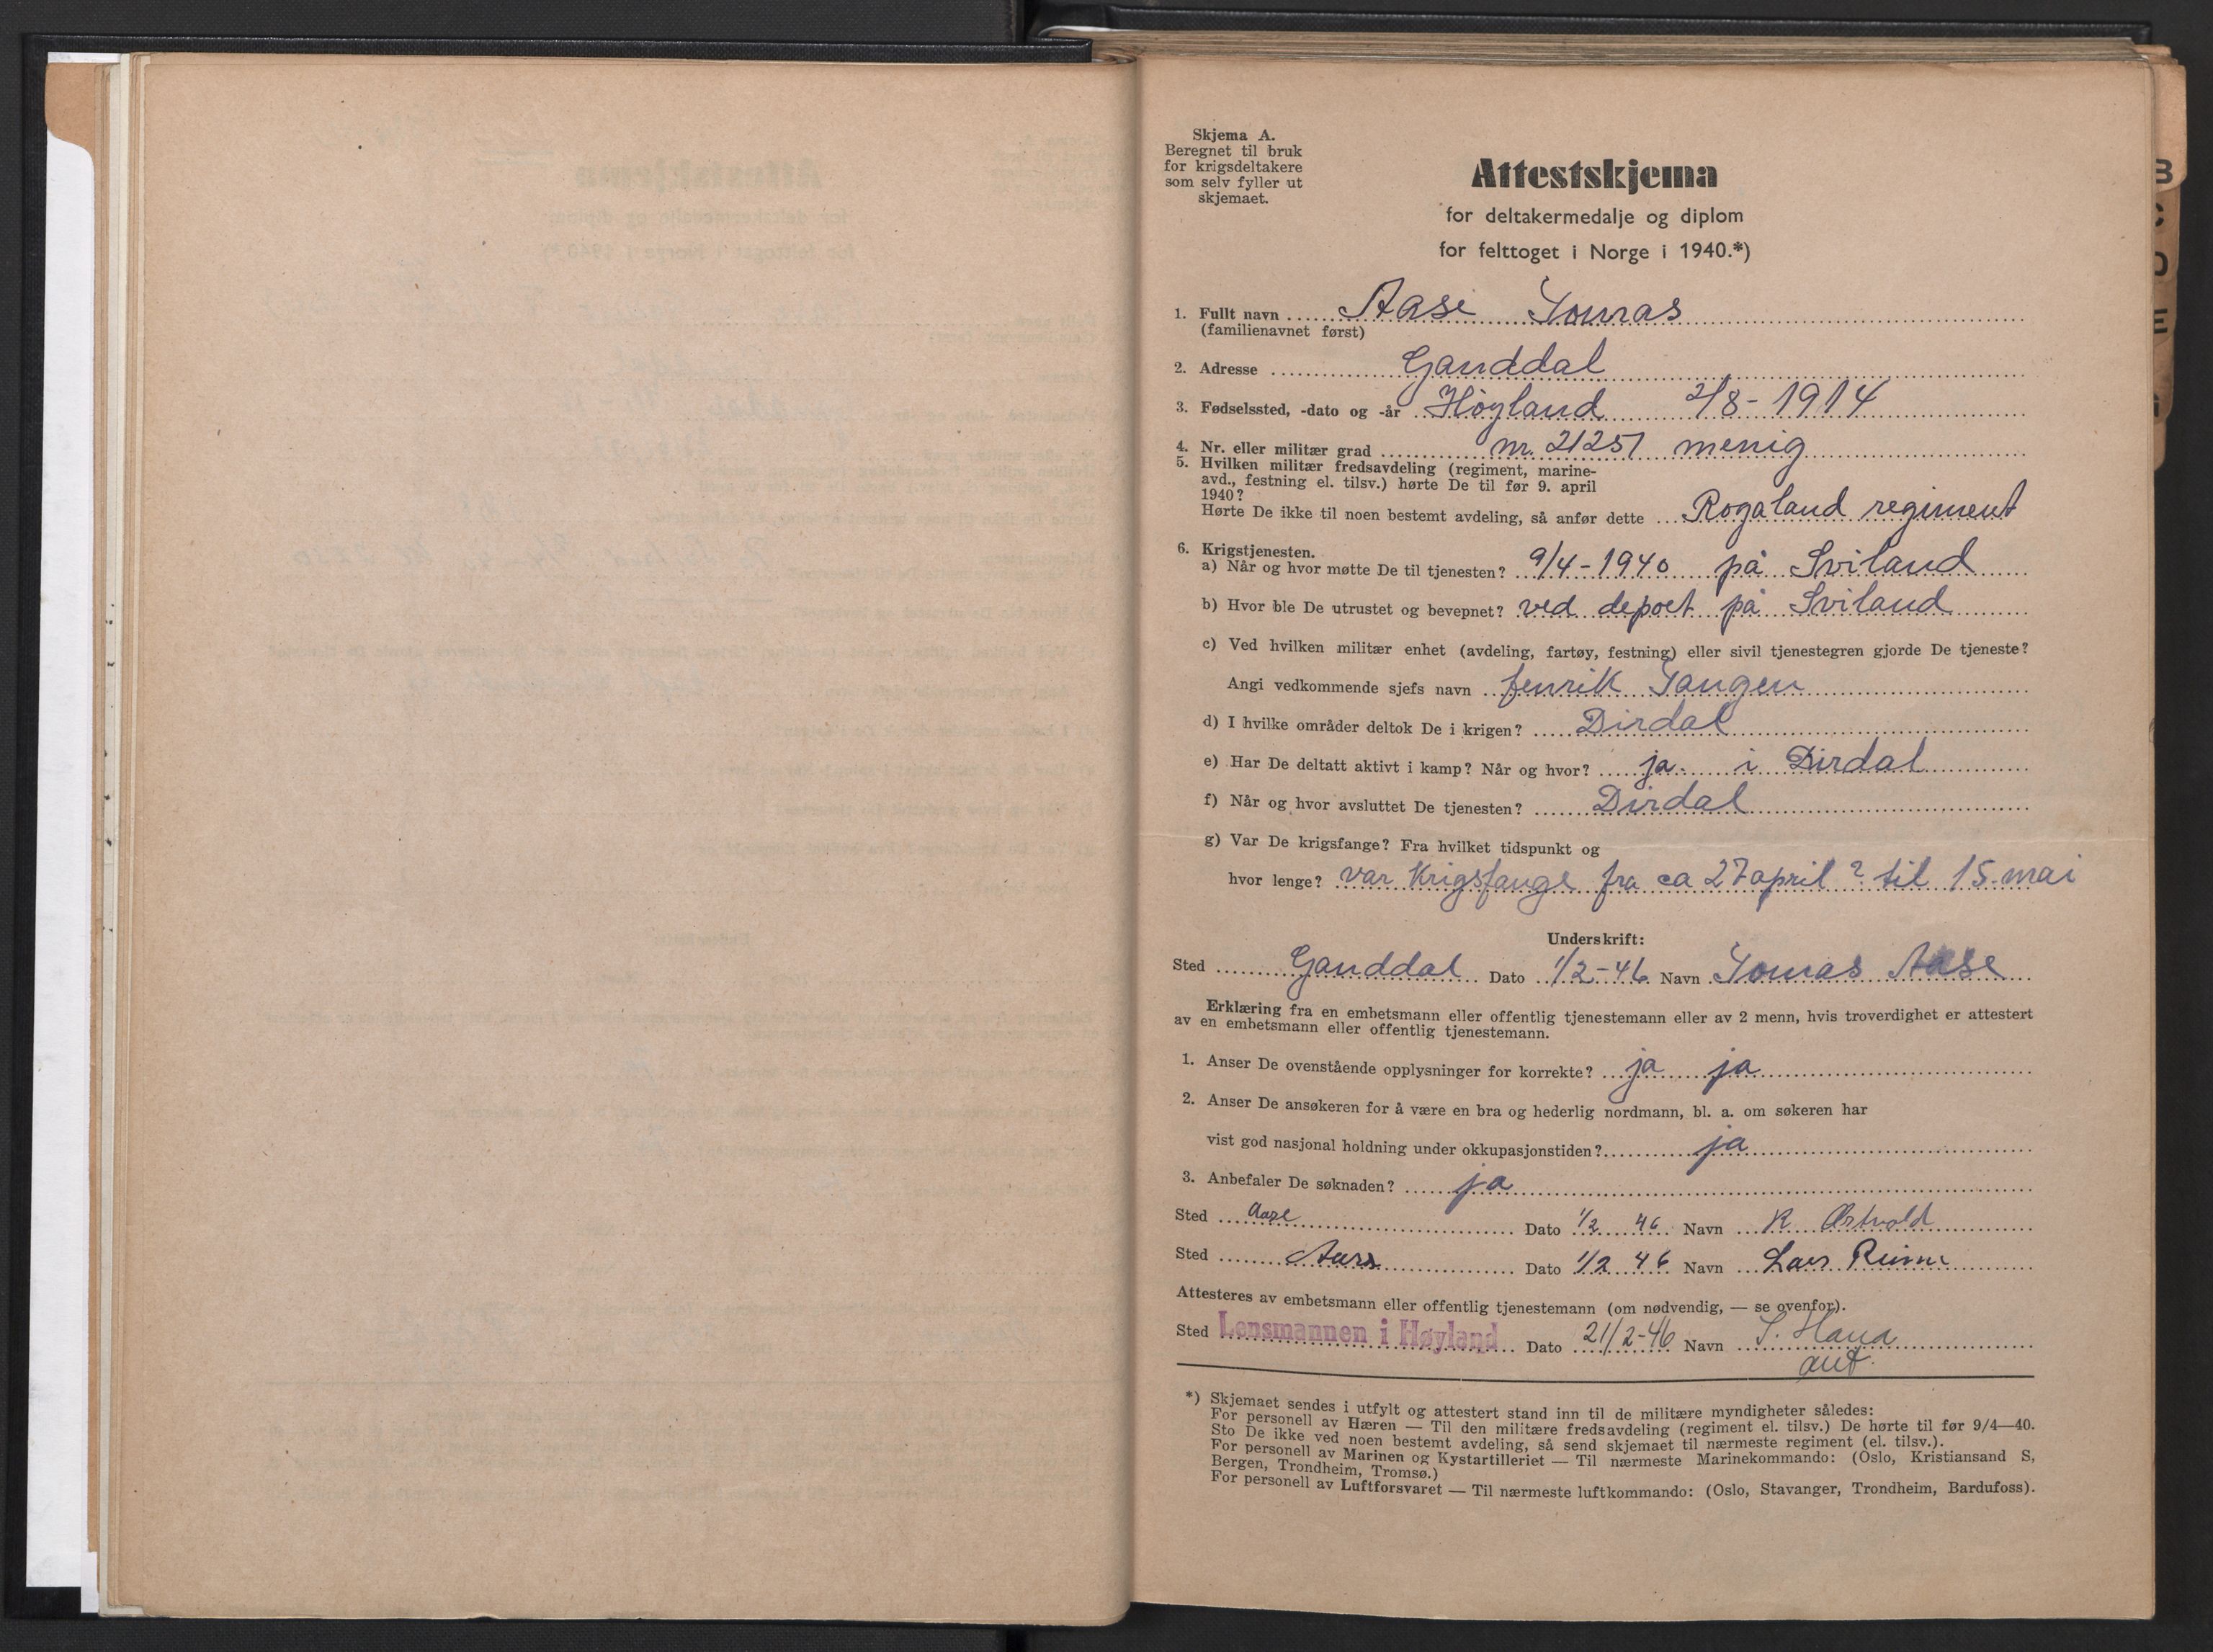 Skjema A.
Beregnet til bruk
for krigsdeltakere
som selv fyller ut
skjemaet.
Attestskjema
for deltakermedalje og diplom
for felttoget i Norge i 1940.*)
1. Fullt navn ..... Aase Tomas
(familienavnet først)
2. Adresse ..... Ganddal
3. Fødselssted, -dato og -år .. Høyland 2/8-1914
4. Nr. eller militær grad ..... nr. 21251 menig
5. Hvilken militær fredsavdeling (regiment, marine-
avd., festning el. tilsv.) hørte De til før 9. april
1940?
Hørte De ikke til noen bestemt avdeling, så anfør dette ... Rogaland regiment
6. Krigstjenesten.
a) Når og hvor møtte De til tjenesten? 9/4-1940 på Sviland
b) Hvor ble De utrustet og bevepnet? ved depoet på Sviland
c) Ved hvilken militær enhet (avdeling, fartøy, festning) eller sivil tjenestegren gjorde De tjeneste?
Angi vedkommende sjefs navn .. fenrik Tangen
d) I hvilke områder deltok De i krigen? .... Dirdal
e) Har De deltatt aktivt i kamp? Når og hvor? .... ja. i Dirdal
f) Når og hvor avsluttet De tjenesten? ..... Dirdal
g) Var De krigsfange? Fra hvilket tidspunkt og
hvor lenge? var Krigsfange fra ca 27 april ? til 15. mai
Underskrift:
Sted ..... Ganddal Dato 1/2-46 Navn Tomas Aase
Erklæring fra en embetsmann eller offentlig tjenestemann eller av 2 menn, hvis troverdighet er attestert
av en embetsmann eller offentlig tjenestemann.
1. Anser De ovenstående opplysninger for korrekte? ... ja ja
2. Anser De ansøkeren for å være en bra og hederlig nordmann, bl. a. om søkeren har
vist god nasjonal holdning under okkupasjonstiden? ..... ja
3. Anbefaler De søknaden? ..... ja
Sted ... Aase Dato 1/2 46 Navn ... R
Sted ..... Dato 1/2 46 Navn ... Lars
Attesteres av embetsmann eller offentlig tjenestemann (om nødvendig, — se ovenfor).
Sted Lensmannen i Høyland Dato 21/2-46 Navn S. Hana
*) Skjemaet sendes i utfylt og attestert stand inn til de militære myndigheter således:
For personell av Hæren — Til den militære fredsavdeling (regiment el. tilsv.) De hørte til før 9/4—40.
Sto De ikke ved noen bestemt avdeling, så send skjemaet til nærmeste regiment (el. tilsv.).
For personell av Marinen og Kystartilleriet — Til nærmeste Marinekommando: (Oslo, Kristiansand S,
Bergen, Trondheim, Tromsø.)
For personell av Luftforsvaret — Til nærmeste luftkommando: (Oslo, Stavanger, Trondheim, Bardufoss).